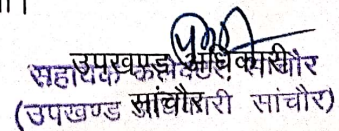 उपखण्ड अधिकारी
सहायक कलेक्टर, सांचौर
सांचौर
(उपखण्ड अधिकारी सांचौर)